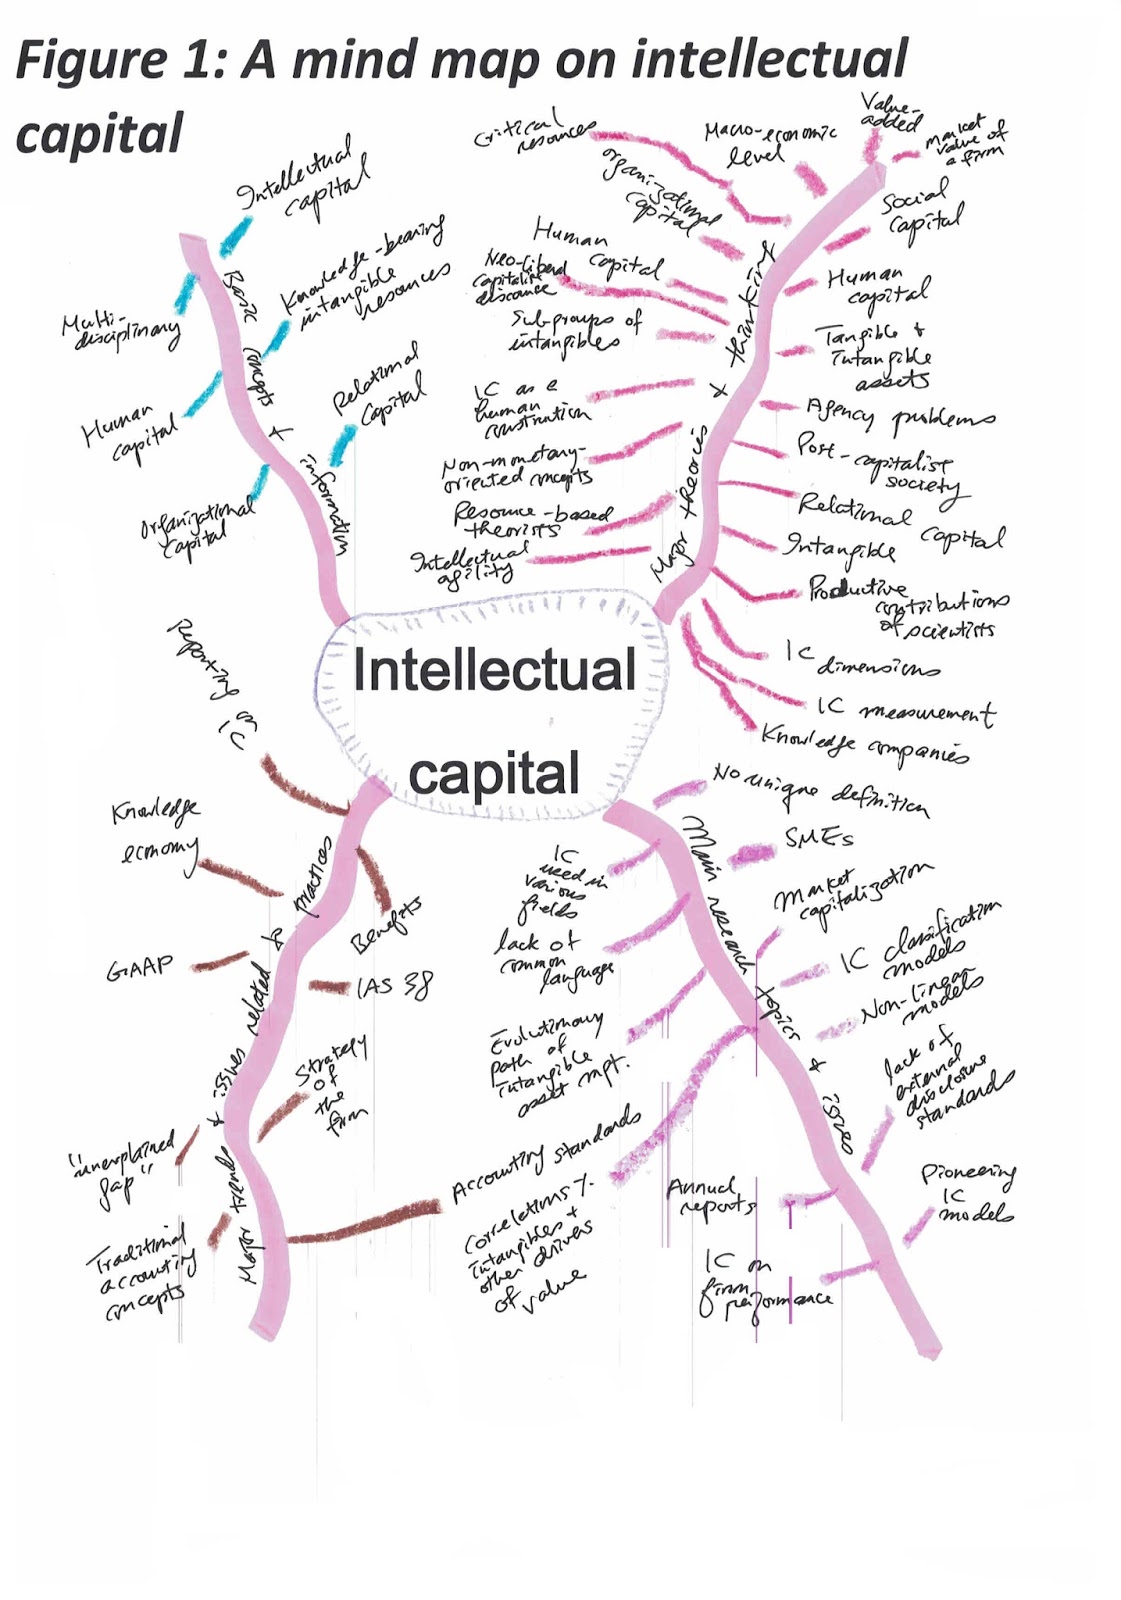 Figure 1: A mind map on intellectual
capital
Intellectual
capital
Basic concepts + information
Intellectual
capital
Multi-
disciplinary
Knowledge-bearing
intangible
resources
Human
capital
Relational
capital
Organizational
capital
Major theories + thinking
Critical
resources
Macro-economic
level
Value-
added
market
value of
a firm
organizational
capital
Social
capital
Human
capital
Neo-liberal
capitalist
discourse
Human
capital
Sub-groups of
intangibles
Tangible +
intangible
assets
IC as a
human
construction
Agency problems
Non-monetary-
oriented concepts
Post-capitalist
society
Resource-based
theorists
Relational
capital
Intellectual
agility
Intangible
Productive
contributions
of scientists
IC
dimensions
IC measurement
Knowledge companies
Major trends + issues related to practices
Reporting on
IC
Knowledge
economy
Benefits
GAAP
IAS 38
Strategy
of
the
firm
"unexplained
gap"
Accounting standards
Traditional
accounting
concepts
Main research topics + issues
No unique definition
IC
used in
various
fields
SMEs
Market
capitalization
lack of
common
language
IC classification
models
Evolutionary
path of
intangible
asset mgt.
Non-linear
models
lack of
external
disclosure
standards
Correlations
intangibles +
other drivers
of value
Annual
reports
Pioneering
IC
models
IC on
firm
performance